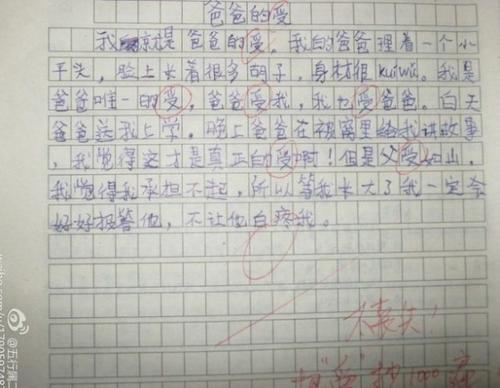 爸爸的受
我就是爸爸的受。我的爸爸理着一个小
平头，脸上长着很多胡子，身材很kuiwu。我是
爸爸唯一的受，爸爸受我，我也受爸爸。白天
爸爸送我上学。晚上爸爸在被窝里给我讲故事
，我觉得这才是真正的受啊！但是父受如山，
我觉得我承担不起，所以等我长大了我一定会
好好报答他，不让他白疼我。
抄1000